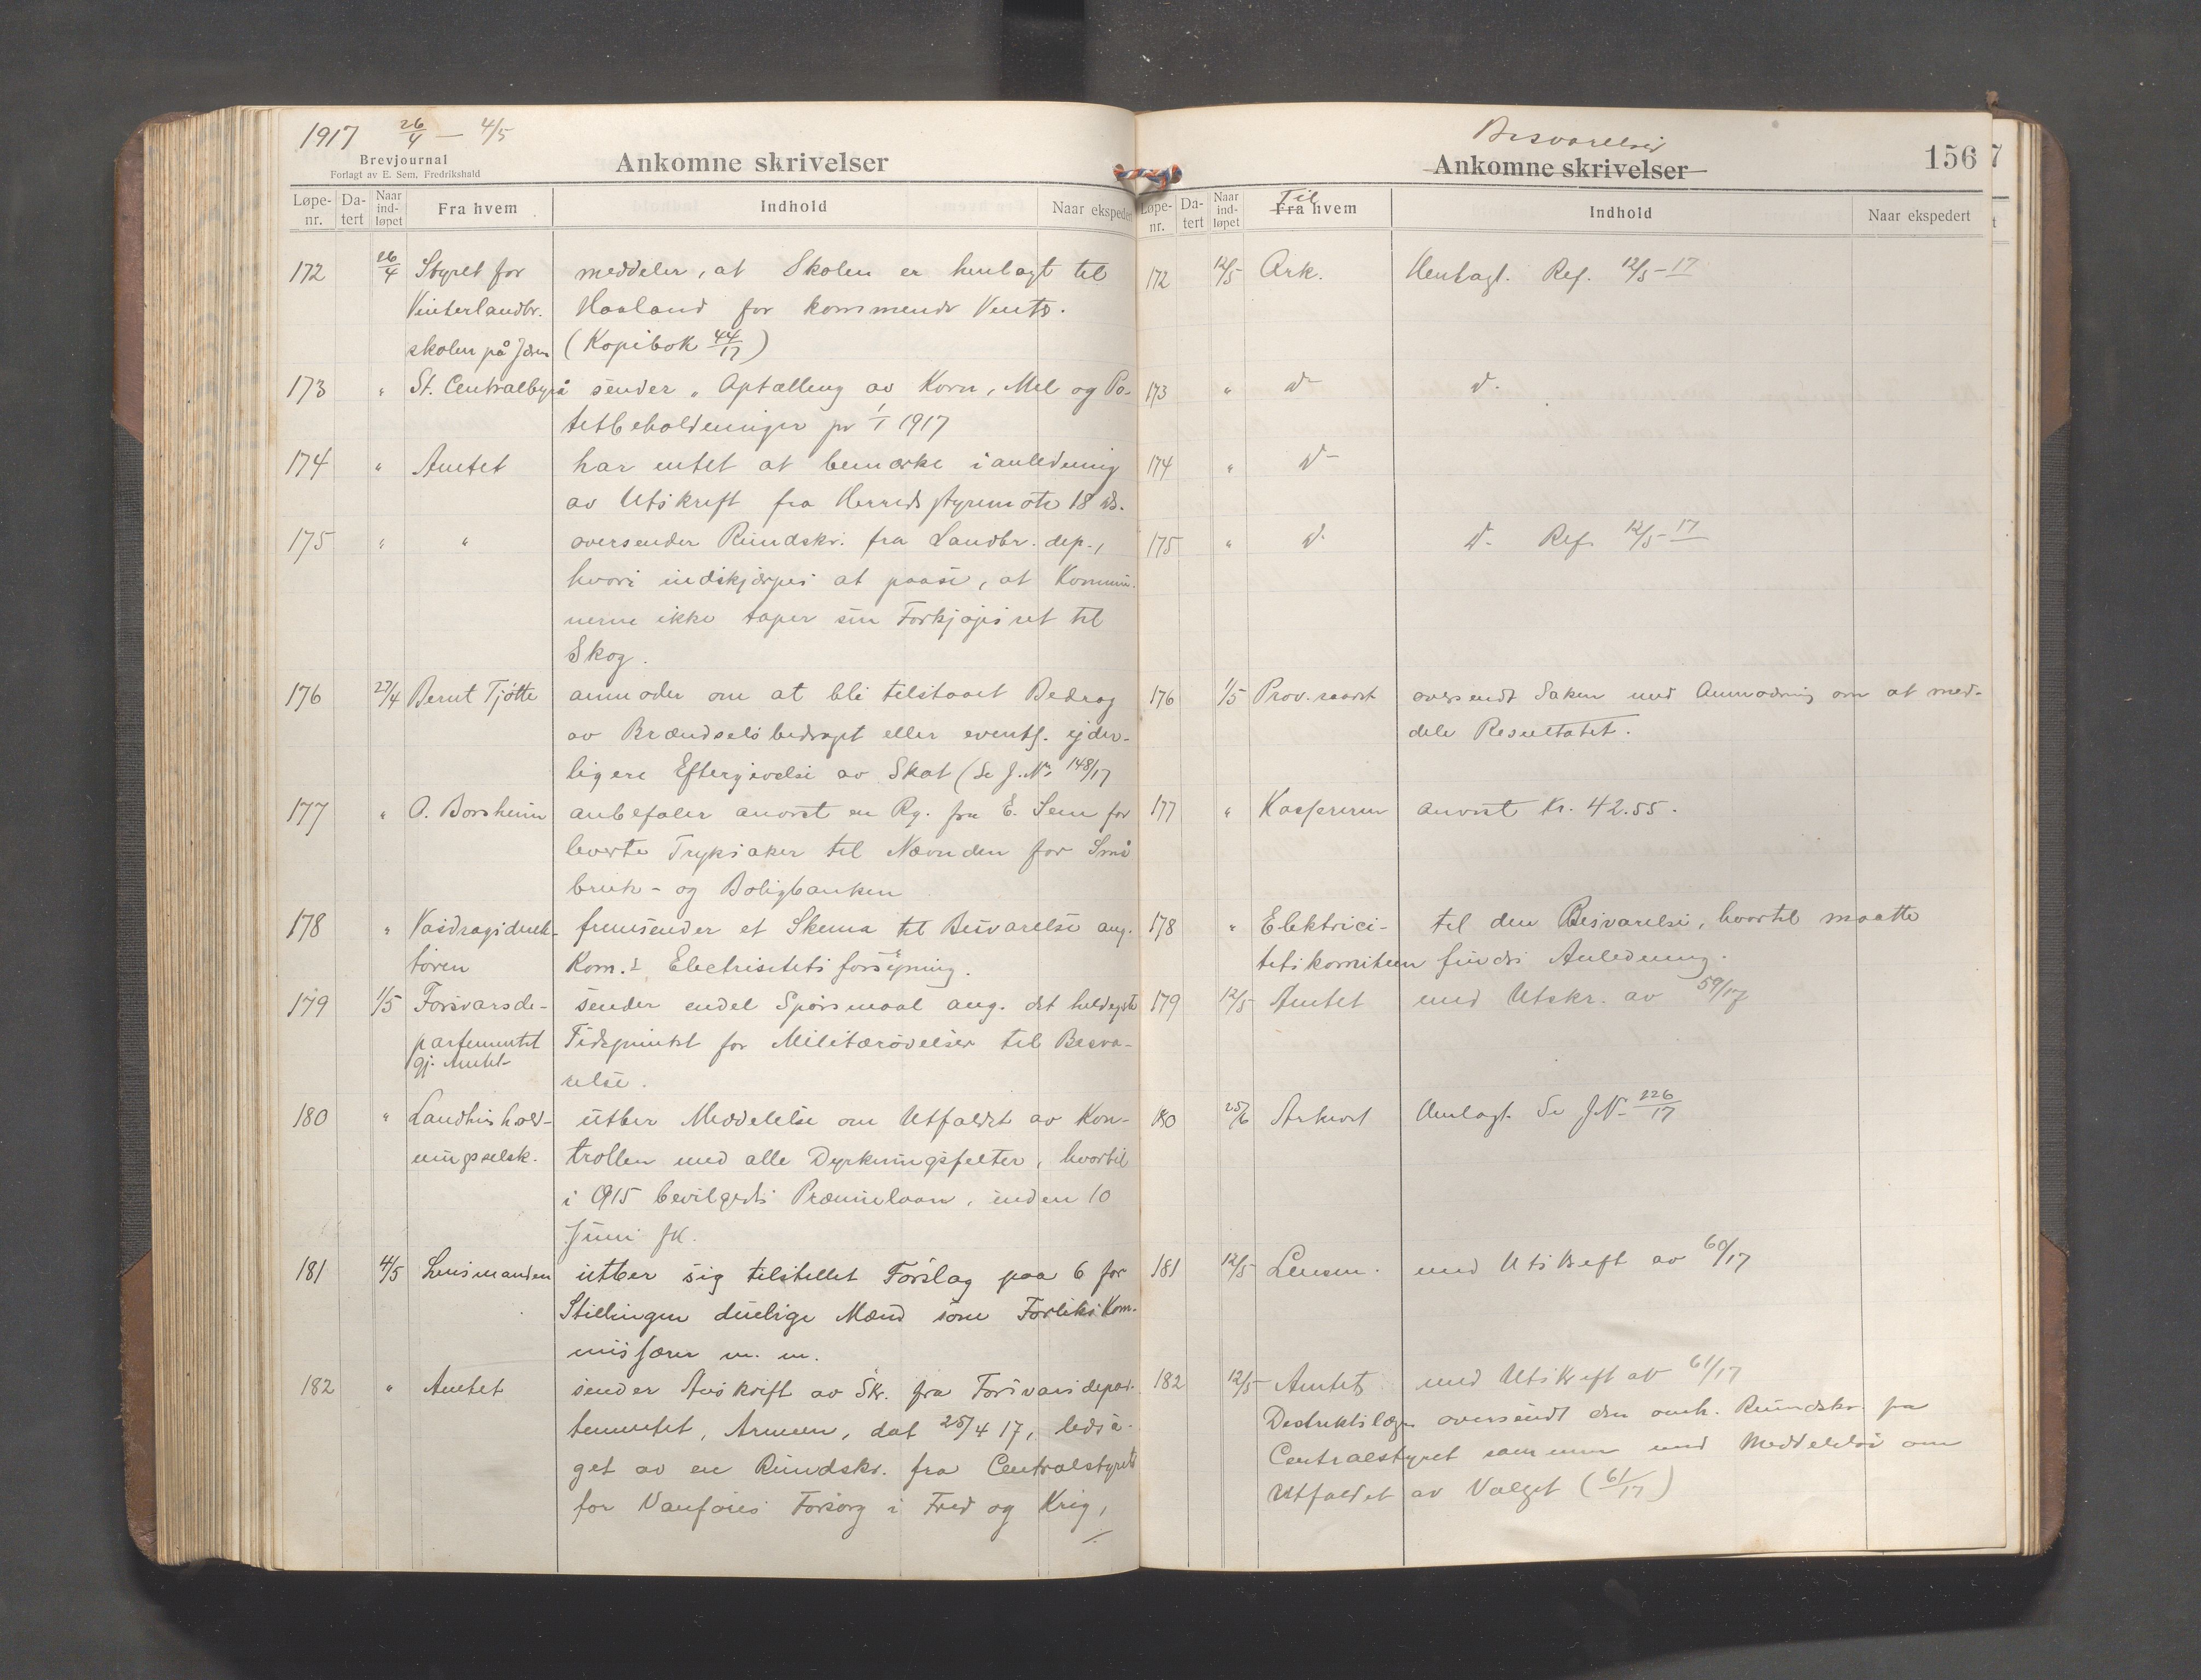 1917 26/4 — 4/5
Brevjournal
Forlagt av E. Sem, Fredrikshald
Ankomne skrivelser
Løpe-nr. Da-tert Naar ind-løpet Fra hvem Indhold Naar ekspedert
172 26/4 Styret for meddeler, at Skolen er henlagt til
Vinterlandbr. Haaland for kommende Vinter.
skolen på Jæren (Kopibok 44/17)
173 " St. Centralbyrå sender „ Optælling av Korn, Mel og Po-
tetbeholdninger pr 1/1 1917
174 " Amtet har intet at bemærke i anledning
av Utskrift fra Herredsstyremøte 18 ds.
175 " " oversender Rundskr. fra Landbr. dep.,
hvori indskjærpes at paase, at Kommu-
nerne ikke taper sin Forkjøpsret til
Skog.
176 27/4 Bernt Tjötte anmoder om at bli tilstaaet Bedrag
av Brændselsbidraget eller eventl. yder-
ligere Eftergivelse av Skat (Se J.Nr 148/17
177 " O. Borsheim anbefaler anvist en Rg. fra E. Sem for
leverte Tryksaker til Nævnden for Små
bruk- og Boligbanken
178 " Vasdragsdirek- fremsender et Skema til Besvarelse ang.
tøren Kom.s Electrisitetsforsyning.
179 1/5 Forsvarsde- sender endel Spørsmaal ang. det heldigste
partementet Tidspunkt for Militærøvelser til Besva-
gj. Amtet relse.
180 " Landhushold- utber Meddelelse om Utfaldet av Kon-
ningsselsk. trollen med alle Dyrkningsfelter, hvortil
i 1915 bevilgedes Præmielaan, inden 10
Juni
181 4/5 Lensmanden utber sig tilstillet Forslag paa 6 for
Stillingen duelige Mænd som Forlikskom-
missærer m. m.
182 " Amtet sender Avskrift av Skr. fra Forsvarsdepar-
tementet, Armeen, dat 25/4 17, ledsa-
get av en Rundskr. fra Centralstyret
for Vanføres Forsorg i Fred og Krig,
./.
Besvarelser
Ankomne skrivelser
156
7
Løpe-nr. Da-tert Naar ind-løpet Fra Til hvem Indhold Naar ekspedert
172 12/5 Ark. Henlagt. Ref. 12/5-17
173 " d- d-
174 " d-
175 " d- d- Ref. 12/5-17
176 1/5 Prov. raadet oversendt Saken med Anmodning om at med-
dele Resultatet.
177 " Kassereren anvist Kr. 42.55.
178 " Elektrici- til den Besvarelse, hvortil maatte
tetskomiteen findes Anledning.
179 12/5 Amtet med Utskr. av 59/17
180 25/6 Arkivet Henlagt. Se J.N- 226/17
181 12/5 Lensm. med Utskrift av 60/17
182 12/5 Amtet med Utskrift av 61/17
Distriktslægen oversendt den omh. Rundskr. fra
Centralstyret sammen med Meddelelse om
Utfaldet av Valget (61/17)